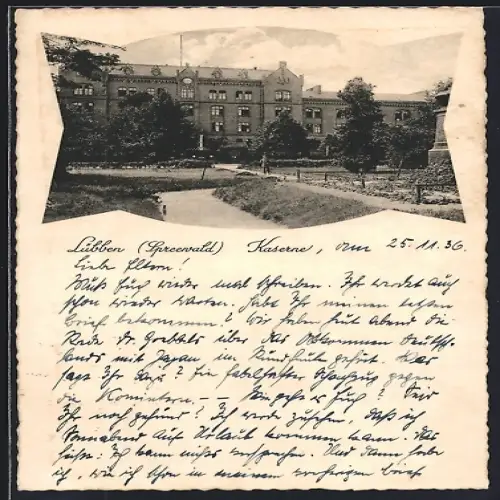 Lübben (Spreewald) Kaserne, am 25.11.36
Liebe Eltern!
Muß Euch wieder mal schreiben. Ihr werdet auch
schon wieder warten. Habt Ihr meinen letzten
Brief bekommen? Wir haben heut abend die
Rede Dr. Goebbels über das Abkommen Deutsch-
lands mit Japan im Rundfunk gehört. Was
sagt Ihr dazu? Ein fabelhafter Schachzug gegen
die Komintern. — — Wie geht's Euch? Seid
Ihr noch gesund? Ich werde zusehen, daß ich
Sonnabend auf Urlaub kommen kann. Das
heißt: Ich kann nichts versprechen. Und dann habe
ich, wie ich schon in meinem vorherigen Brief